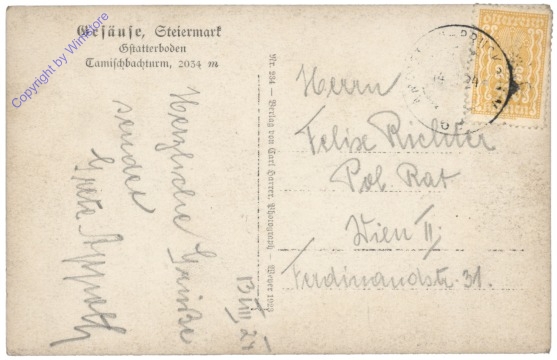 Gesäuse, Steiermark
Gstatterboden
Tamischbachturm, 2034 m
Copyright by Winstore
Herzliche Grüße
sendet
Greta
Nr. 234 — Verlag von Carl Harrer, Photograph — Weyer 1923
Herrn
Felix Richter
Pol Rat
Wien II.
Ferdinandstr. 31.